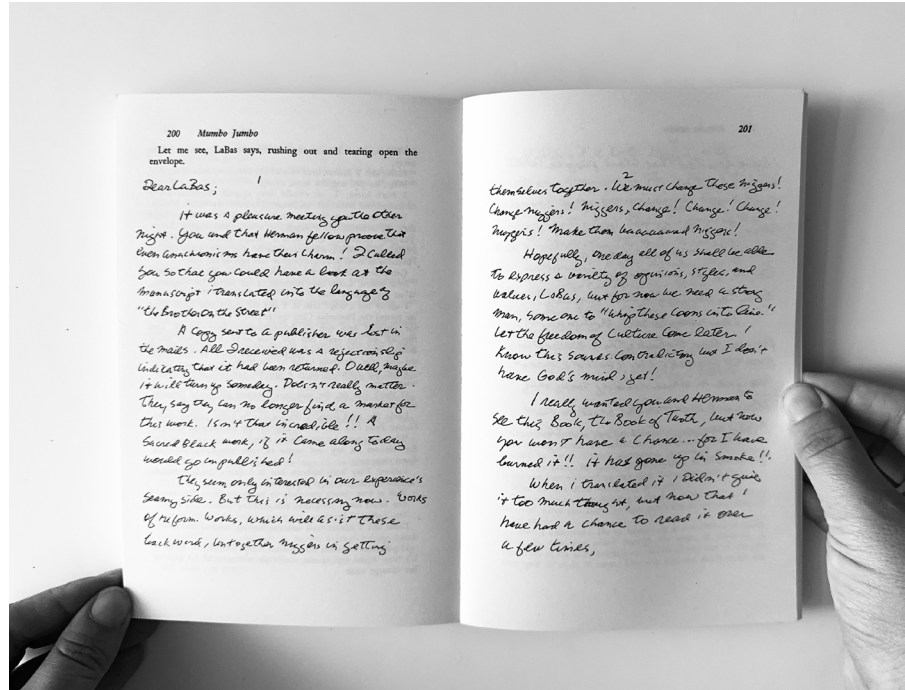 200 Mumbo Jumbo
Let me see, LaBas says, rushing out and tearing open the
envelope.
1
Dear LaBas;
It was a pleasure meeting you the other
night. You and that Herman fellow proove that
even anachronisms have their Charm! I called
you so that you could have a look at the
manuscript i translated into the language of
"the Brother on the Street"
A Copy sent to a publisher was lost in
the mails. All I received was a rejection slip
indicating that it had been returned. O well, maybe
it will turn up someday. Doesn't really matter.
They say they can no longer find a market for
this work. Isn't that incredible!! A
Sacred Black work, if it came along today
would go unpublished!
They seem only interested in our experience's
seamy side. But this is necessary now. Works
of reform. Works, which will assist these
backward, untogether niggers in getting
201
2
themselves together. We must change these niggers!
Change niggers! Niggers, Change! Change! Change!
Niggers! Make them baaaaaaad Niggers!
Hopefully, one day all of us shall be able
to express a variety of opinions, styles, and
values, LaBas, but for now we need a strong
man, some one to "whip these Coons into line."
Let the freedom of Culture Come later! I
know this sounds contradictory but I don't
have God's mind, yet!
I really wanted you and Herman to
see this Book, the Book of Thoth, but now
you won't have a Chance...for I have
burned it!! it has gone up in smoke!!
When i translated it i didn't give
it too much thought, but now that I
have had a chance to read it over
a few times,